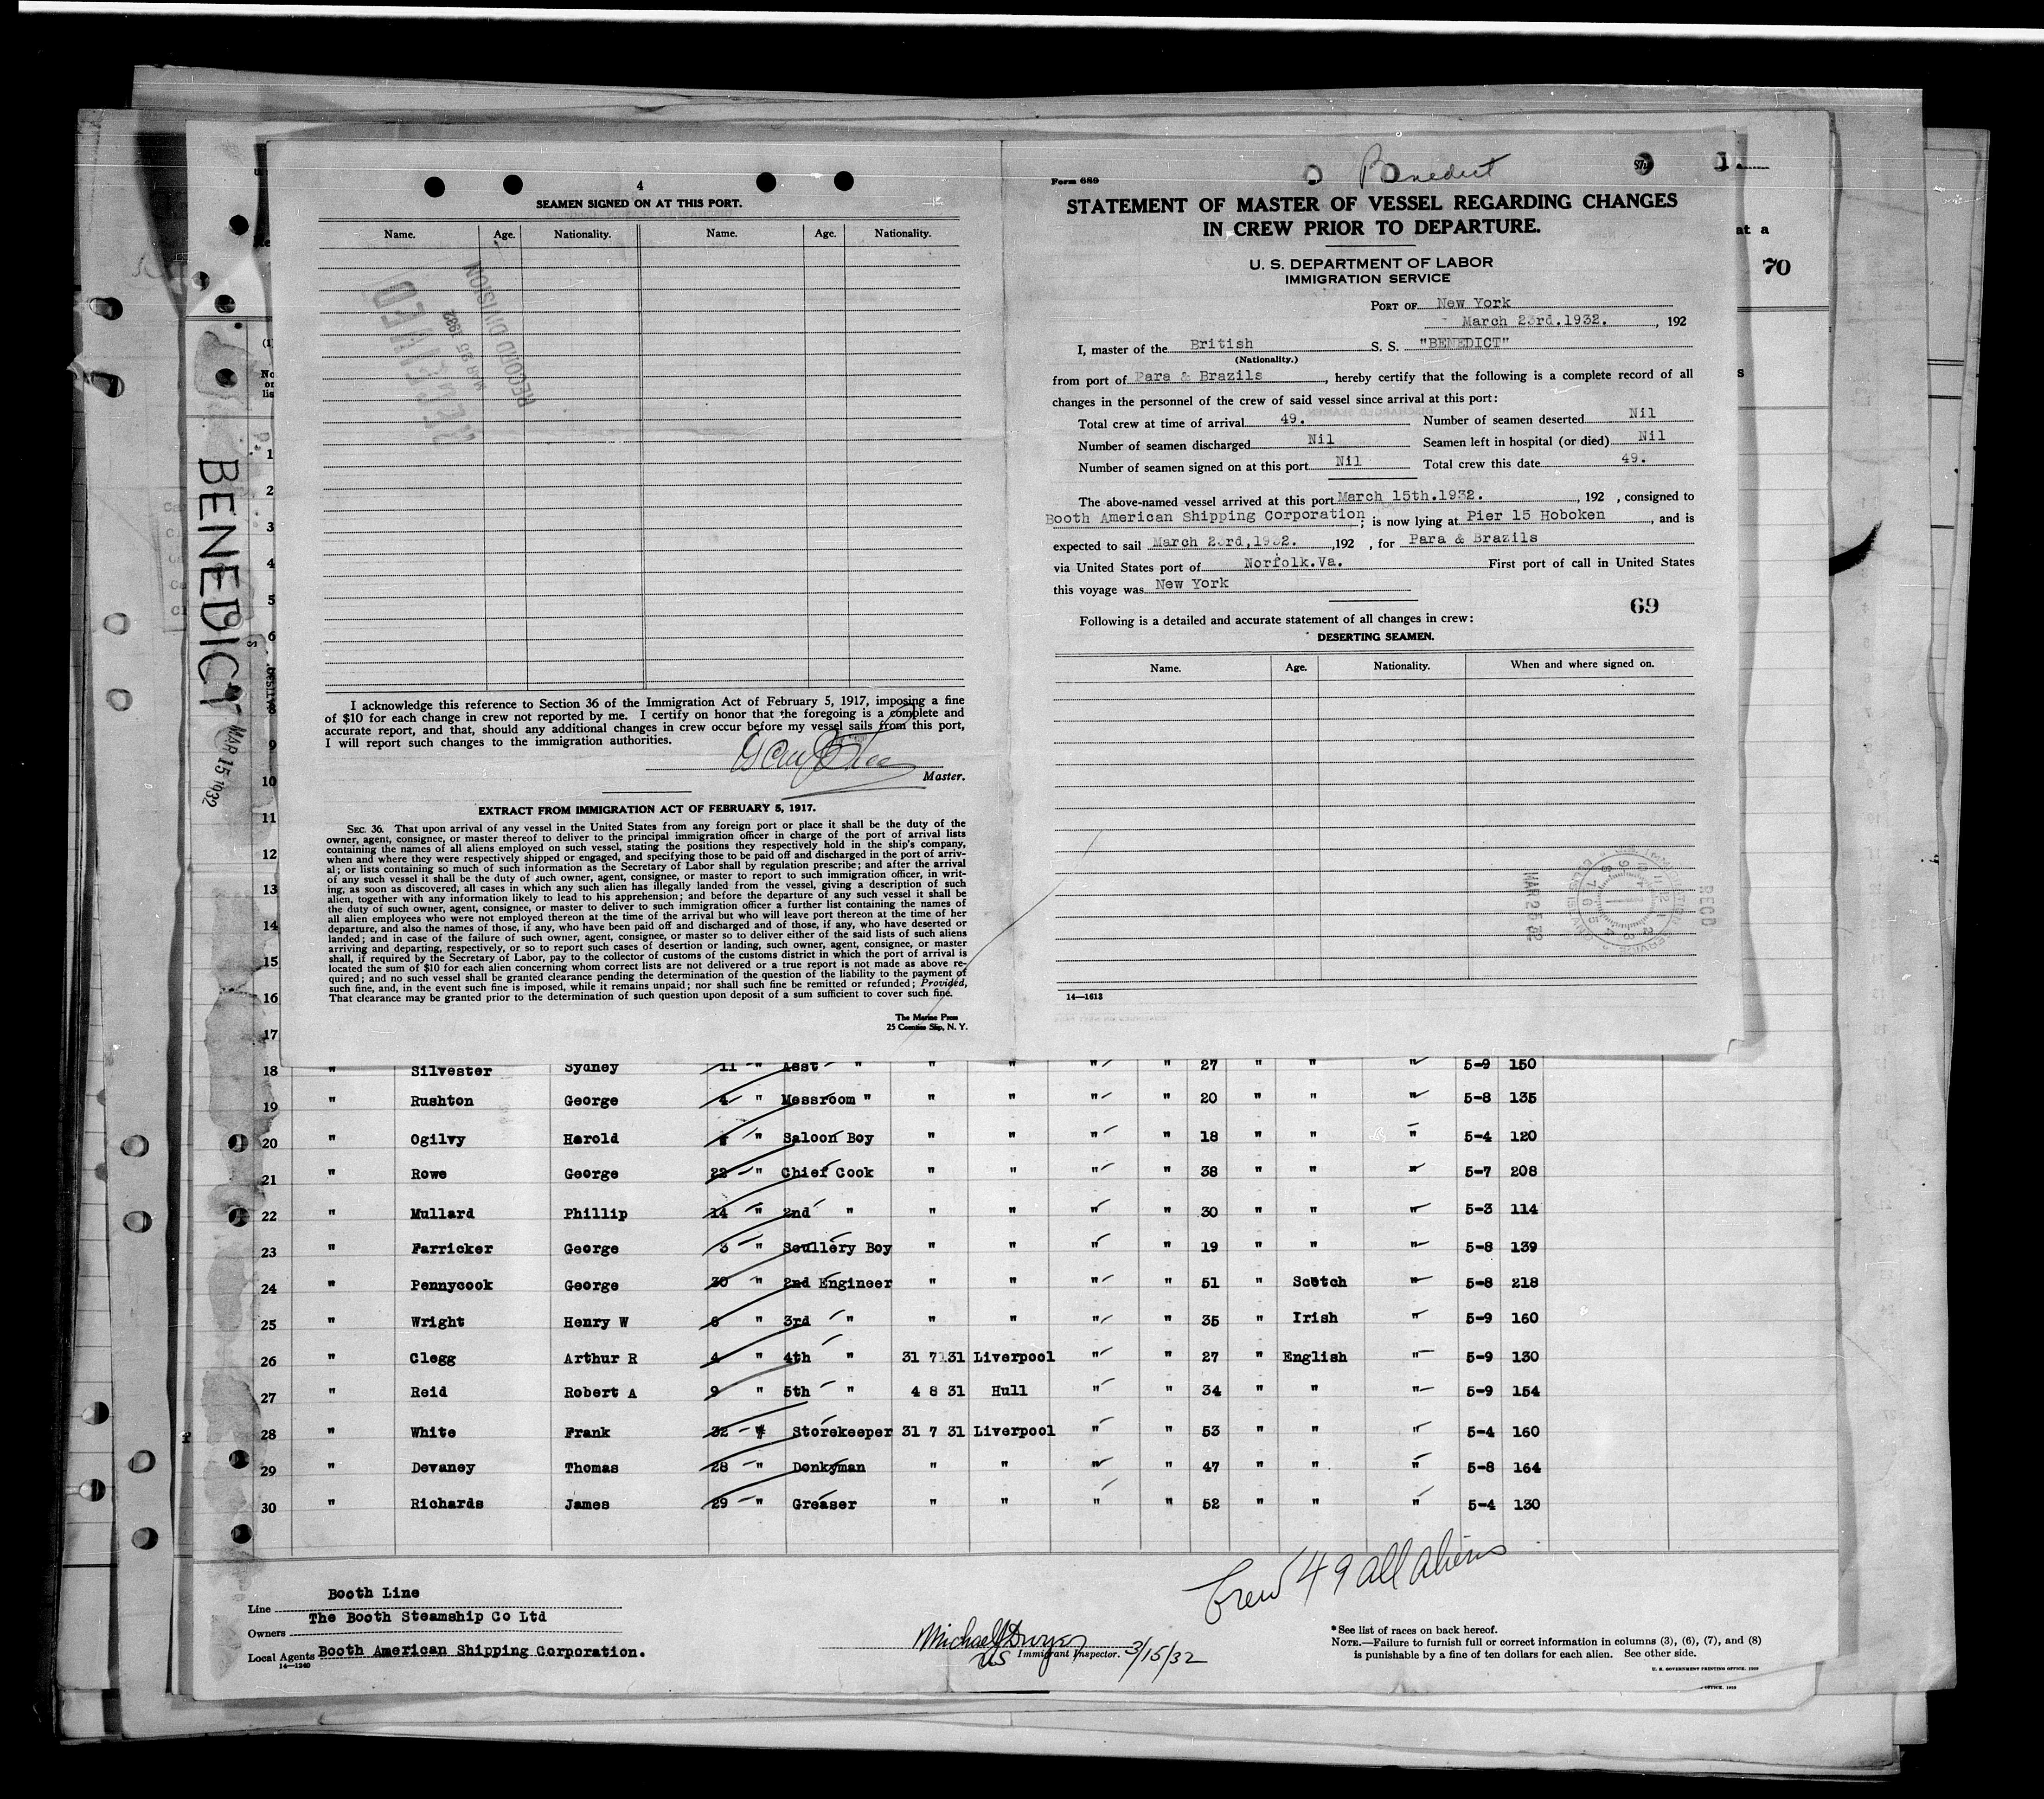 4
SEAMEN SIGNED ON AT THIS PORT.
Name. Age. Nationality. Name. Age. Nationality.
RECEIVED
MAR 25 1932
RECORD DIVISION
I acknowledge this reference to Section 36 of the Immigration Act of February 5, 1917, imposing a fine
of $10 for each change in crew not reported by me. I certify on honor that the foregoing is a complete and
accurate report, and that, should any additional changes in crew occur before my vessel sails from this port,
I will report such changes to the immigration authorities.
Master.
EXTRACT FROM IMMIGRATION ACT OF FEBRUARY 5, 1917.
SEC. 36. That upon arrival of any vessel in the United States from any foreign port or place it shall be the duty of the
owner, agent, consignee, or master thereof to deliver to the principal immigration officer in charge of the port of arrival lists
containing the names of all aliens employed on such vessel, stating the positions they respectively hold in the ship's company,
when and where they were respectively shipped or engaged, and specifying those to be paid off and discharged in the port of arriv-
al; or lists containing so much of such information as the Secretary of Labor shall by regulation prescribe; and after the arrival
of any such vessel it shall be the duty of such owner, agent, consignee, or master to report to such immigration officer, in writ-
ing, as soon as discovered, all cases in which any such alien has illegally landed from the vessel, giving a description of such
alien, together with any information likely to lead to his apprehension; and before the departure of any such vessel it shall be
the duty of such owner, agent, consignee, or master to deliver to such immigration officer a further list containing the names of
all alien employees who were not employed thereon at the time of the arrival but who will leave port thereon at the time of her
departure, and also the names of those, if any, who have been paid off and discharged and of those, if any, who have deserted or
landed; and in case of the failure of such owner, agent, consignee, or master so to deliver either of the said lists of such aliens
arriving and departing, respectively, or so to report such cases of desertion or landing, such owner, agent, consignee, or master
shall, if required by the Secretary of Labor, pay to the collector of customs of the customs district in which the port of arrival is
located the sum of $10 for each alien concerning whom correct lists are not delivered or a true report is not made as above re-
quired; and no such vessel shall be granted clearance pending the determination of the question of the liability to the payment of
such fine, and, in the event such fine is imposed, while it remains unpaid; nor shall such fine be remitted or refunded; Provided,
That clearance may be granted prior to the determination of such question upon deposit of a sum sufficient to cover such fine.
The Marine Press
25 Coenties Slip, N. Y.
Benedict
Form 689
STATEMENT OF MASTER OF VESSEL REGARDING CHANGES
IN CREW PRIOR TO DEPARTURE.
U. S. DEPARTMENT OF LABOR
IMMIGRATION SERVICE
PORT OF New York
March 23rd.1932. , 192
I, master of the British S. S. "BENEDICT"
(Nationality.)
from port of Para & Brazils , hereby certify that the following is a complete record of all
changes in the personnel of the crew of said vessel since arrival at this port:
Total crew at time of arrival 49. Number of seamen deserted Nil
Number of seamen discharged Nil Seamen left in hospital (or died) Nil
Number of seamen signed on at this port Nil Total crew this date 49.
The above-named vessel arrived at this port March 15th.1932. , 192 , consigned to
Booth American Shipping Corporation ; is now lying at Pier 15 Hoboken , and is
expected to sail March 23rd,1932. ,192 , for Para & Brazils
via United States port of Norfolk.Va. First port of call in United States
this voyage was New York
69
Following is a detailed and accurate statement of all changes in crew:
DESERTING SEAMEN.
Name. Age. Nationality. When and where signed on.
MAR 25 32
RECD
14—1613
1.
at a
70
s
BENEDICT MAR 15 1932
1
2
3
4
5
6
8
9
10
11
12
13
14
15
16
17
18 " Silvester Sydney 11 " Asst " " " " " 27 " " " 5-9 150
19 " Rushton George 4 " Messroom " " " " " 20 " " " 5-8 135
20 " Ogilvy Harold " Saloon Boy " " " " 18 " " " 5-4 120
21 " Rowe George 22 " Chief Cook " " " " 38 " " " 5-7 208
22 " Mullard Phillip 14 " 2nd " " " " " 30 " " " 5-3 114
23 " Farricker George 3 " Scullery Boy " " " " 19 " " " 5-8 139
24 " Pennycook George 30 " 2nd Engineer " " " " 51 " Scotch " 5-8 218
25 " Wright Henry W 8 " 3rd " " " " " 35 " Irish " 5-9 160
26 " Clegg Arthur R 4 " 4th " 31 7 31 Liverpool " " 27 " English " 5-9 130
27 " Reid Robert A 9 " 5th " 4 8 31 Hull " " 34 " " " 5-9 154
28 " White Frank 32 " Storekeeper 31 7 31 Liverpool " " 53 " " " 5-4 160
29 " Devaney Thomas 28 " Donkyman " " " " 47 " " " 5-8 164
30 " Richards James 29 " Greaser " " " " 52 " " " 5-4 130
Crew 49 all aliens
Line Booth Line
Owners The Booth Steamship Co Ltd
Local Agents Booth American Shipping Corporation.
14—1240
Michael J Dwyer
US Immigrant Inspector. 3/15/32
*See list of races on back hereof.
NOTE.—Failure to furnish full or correct information in columns (3), (6), (7), and (8)
is punishable by a fine of ten dollars for each alien. See other side.
U. S. GOVERNMENT PRINTING OFFICE